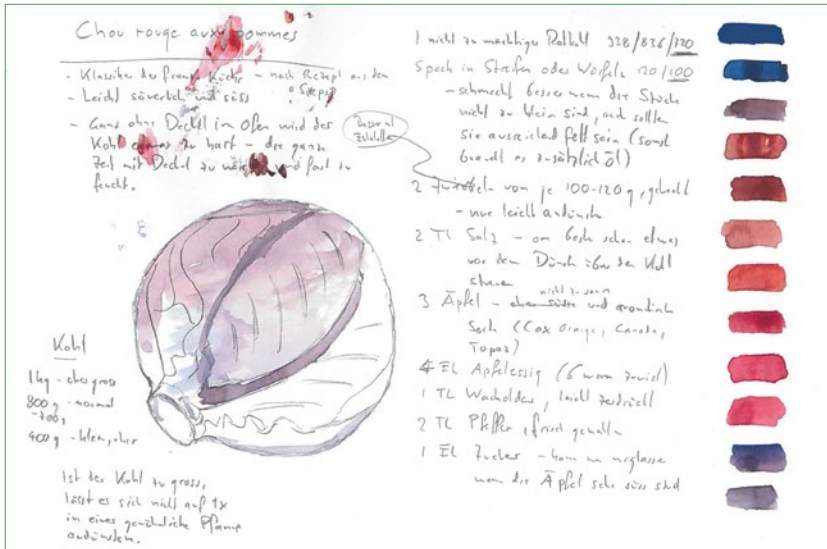 Chou rouge aux pommes
- Klassiker der franz. Küche - nach Rezept aus den
- Leicht säuerlich und süss
- Ganz ohne Deckel im Ofen wird der
Kohl etwas zu hart - die ganze
Zeit mit Deckel zu und fast zu
feucht.
Kohl
1kg - eher gross
800g - normal
-700g
400g - klein, eher
Ist der Kohl zu gross,
lässt es sich nicht auf 1x
in eine gewöhnliche Pfanne
andünsten.
1 nicht zu mächtiger Rotkohl 938/836/720
Speck in Streifen oder Würfeln 120/100
- schmeckt besser wenn die Stücke
nicht zu klein sind, und sollten
sie ausreichend fett sein (sonst
braucht es zusätzlich Öl)
2 Zwiebeln von je 100-120g, gehackt
- nur leicht andünsten
2 TL Salz - am besten schon etwas
vor dem Dünsten über den Kohl
streuen
nicht zu saure
3 Äpfel - eher süsse und aromatische
(Cox Orange, Topaz)
4 EL Apfelessig (6 waren zuviel)
1 TL Wacholder, leicht zerdrückt
2 TL Pfeffer, frisch gemahlen
1 EL Zucker - kann man weglassen
wenn die Äpfel sehr süss sind